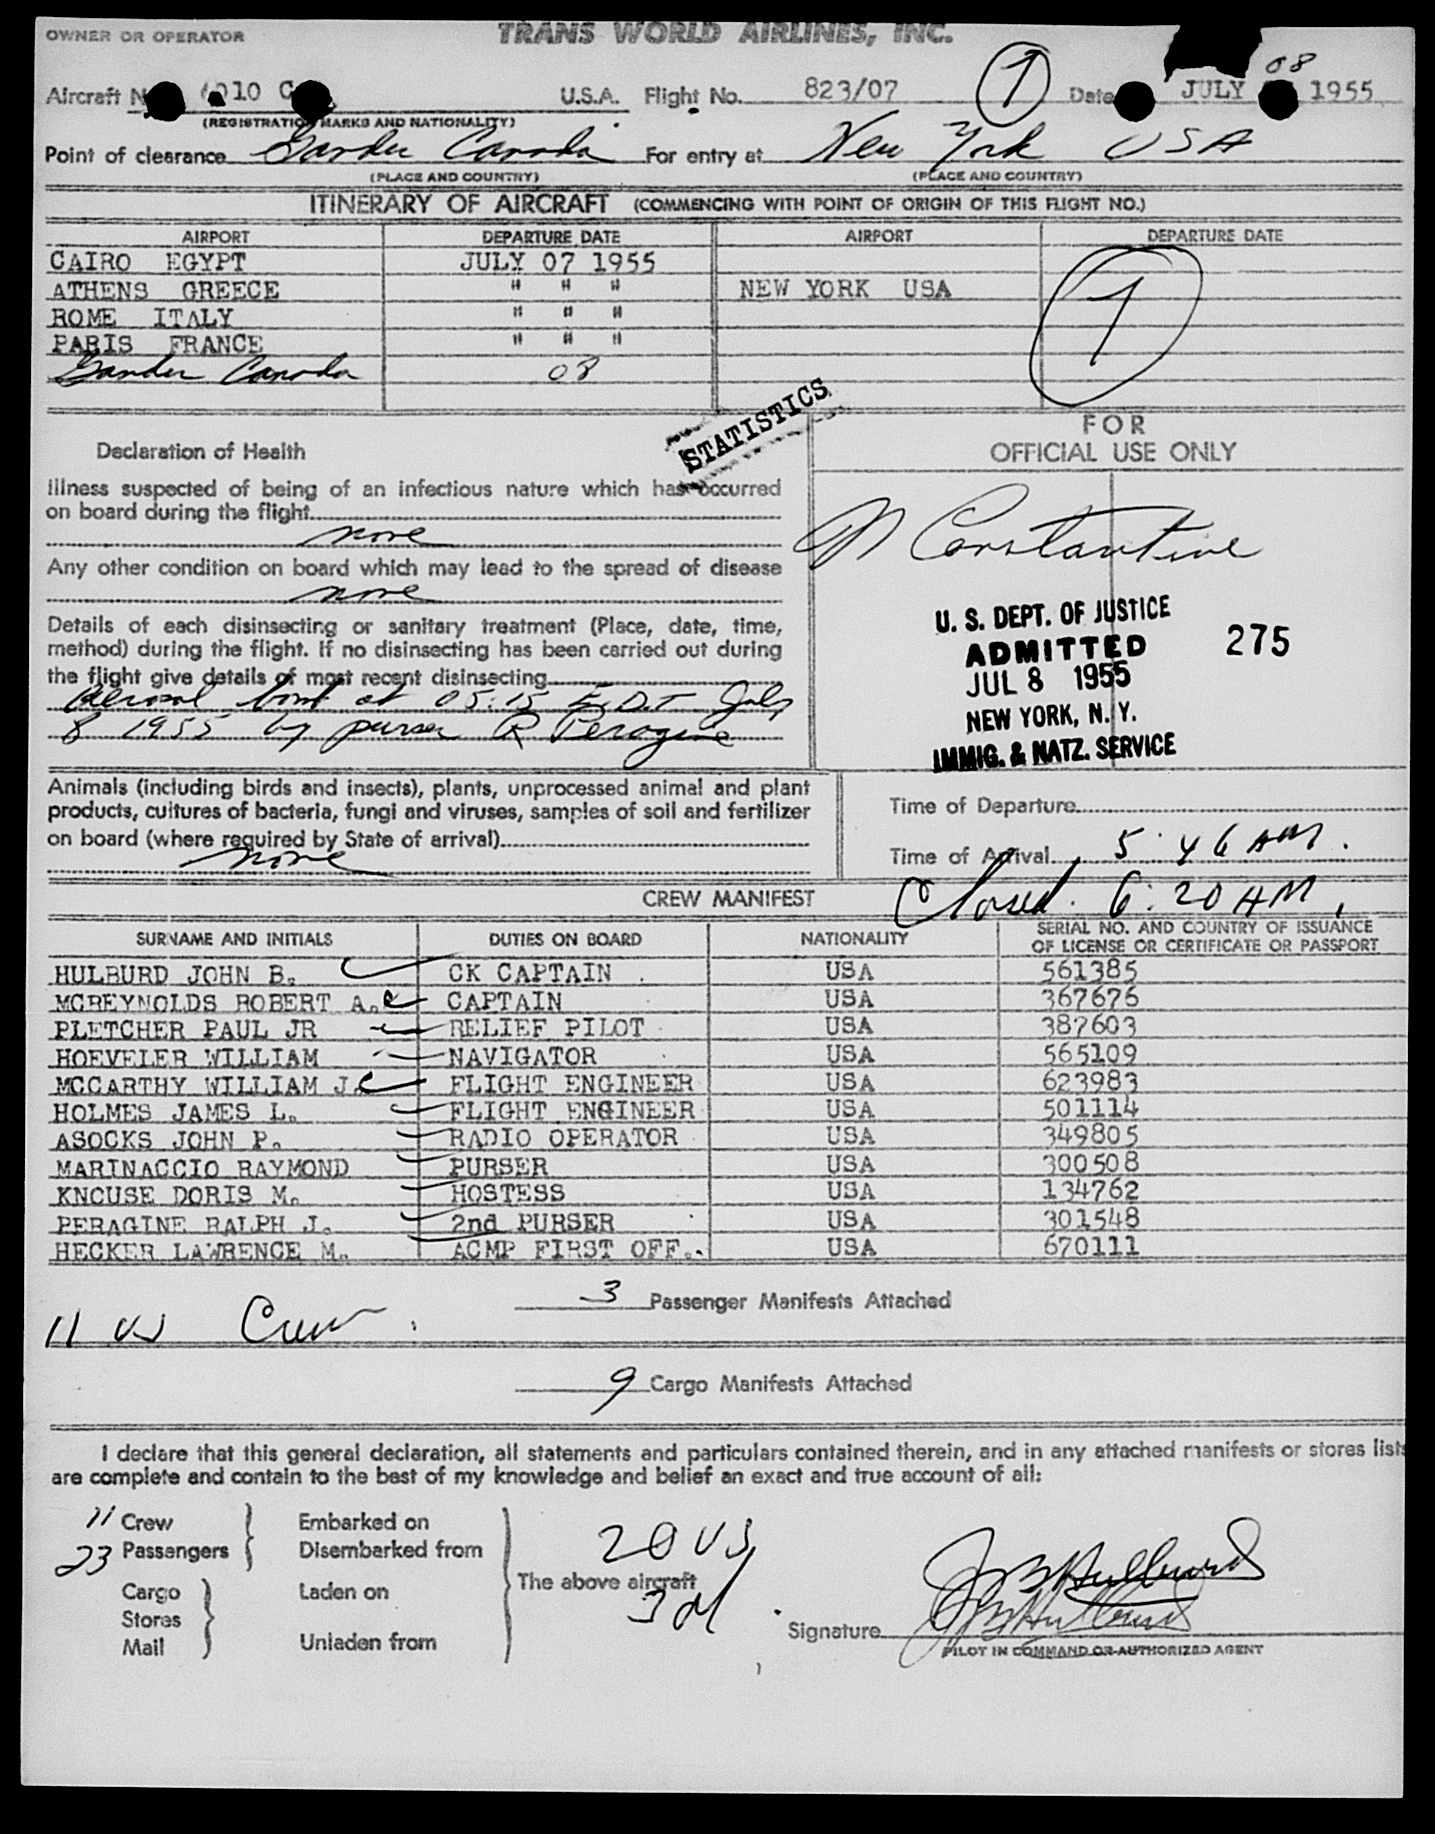 TRANS WORLD AIRLINES, INC.
OWNER OR OPERATOR
Aircraft 10 C U.S.A. Flight No. 823/07 1 Date JULY 08 1955
(REGISTRATION MARKS AND NATIONALITY)
Point of clearance Gander Canada For entry at New York USA
(PLACE AND COUNTRY) (PLACE AND COUNTRY)
ITINERARY OF AIRCRAFT (COMMENCING WITH POINT OF ORIGIN OF THIS FLIGHT NO.)
AIRPORT DEPARTURE DATE AIRPORT DEPARTURE DATE
CAIRO EGYPT JULY 07 1955
ATHENS GREECE " " " NEW YORK USA 1
ROME ITALY " " "
PARIS FRANCE " " "
Gander Canada 08
STATISTICS
FOR
OFFICIAL USE ONLY
Declaration of Health
Illness suspected of being of an infectious nature which has occurred
on board during the flight
none
M Constantine
Any other condition on board which may lead to the spread of disease
none
Details of each disinsecting or sanitary treatment (Place, date, time,
method) during the flight. If no disinsecting has been carried out during
the flight give details of most recent disinsecting
Aerosol bomb at 05:15 E.D.T July
8 1955 by purser R Peragine
U. S. DEPT. OF JUSTICE
ADMITTED 275
JUL 8 1955
NEW YORK, N. Y.
IMMIG. & NATZ. SERVICE
Animals (including birds and insects), plants, unprocessed animal and plant
products, cultures of bacteria, fungi and viruses, samples of soil and fertilizer
on board (where required by State of arrival)
none
Time of Departure
Time of Arrival 5:46 AM.
Closed. 6:20 AM.
CREW MANIFEST
SURNAME AND INITIALS DUTIES ON BOARD NATIONALITY SERIAL NO. AND COUNTRY OF ISSUANCE
OF LICENSE OR CERTIFICATE OR PASSPORT
HULBURD JOHN B. CK CAPTAIN USA 561385
MCREYNOLDS ROBERT A. CAPTAIN USA 367676
PLETCHER PAUL JR RELIEF PILOT USA 387603
HOEVELER WILLIAM NAVIGATOR USA 565109
MCCARTHY WILLIAM J. FLIGHT ENGINEER USA 623983
HOLMES JAMES L. FLIGHT ENGINEER USA 501114
ASOCKS JOHN P. RADIO OPERATOR USA 349805
MARINACCIO RAYMOND PURSER USA 300508
KNCUSE DORIS M. HOSTESS USA 134762
PERAGINE RALPH J. 2nd PURSER USA 301548
HECKER LAWRENCE M. ACMP FIRST OFF. USA 670111
3 Passenger Manifests Attached
11 US Crew
9 Cargo Manifests Attached
I declare that this general declaration, all statements and particulars contained therein, and in any attached manifests or stores lists
are complete and contain to the best of my knowledge and belief an exact and true account of all:
11 Crew Embarked on
23 Passengers Disembarked from
20 US
The above aircraft
3 al
Cargo Laden on
Stores
Mail Unladen from
J B Hulburd
Signature J B Hulburd
PILOT IN COMMAND OR AUTHORIZED AGENT